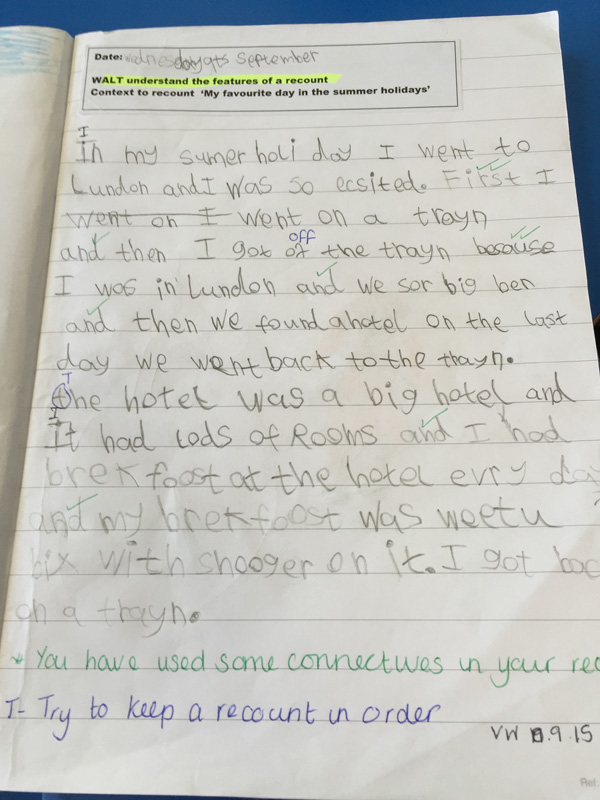 Date: Wednesday 9th September
WALT understand the features of a recount
Context to recount 'My favourite day in the summer holidays'
I
In my sumer holi day I went to
Lundon and I was so ecsited. First I
went on I went on a trayn
off
and then I got of the trayn because
I was in Lundon and we sor big ben
and then we found a hotel on the last
day we went back to the trayn.
T
the hotel was a big hotel and
I
It had lods of Rooms and I had
brekfoost at the hotel evry day
and my brekfoost was weetu
bix with shooger on it. I got bac
on a trayn.
* You have used some connectives in your rec
I- Try to keep a recount in order
VW 9.9.15
Ref: